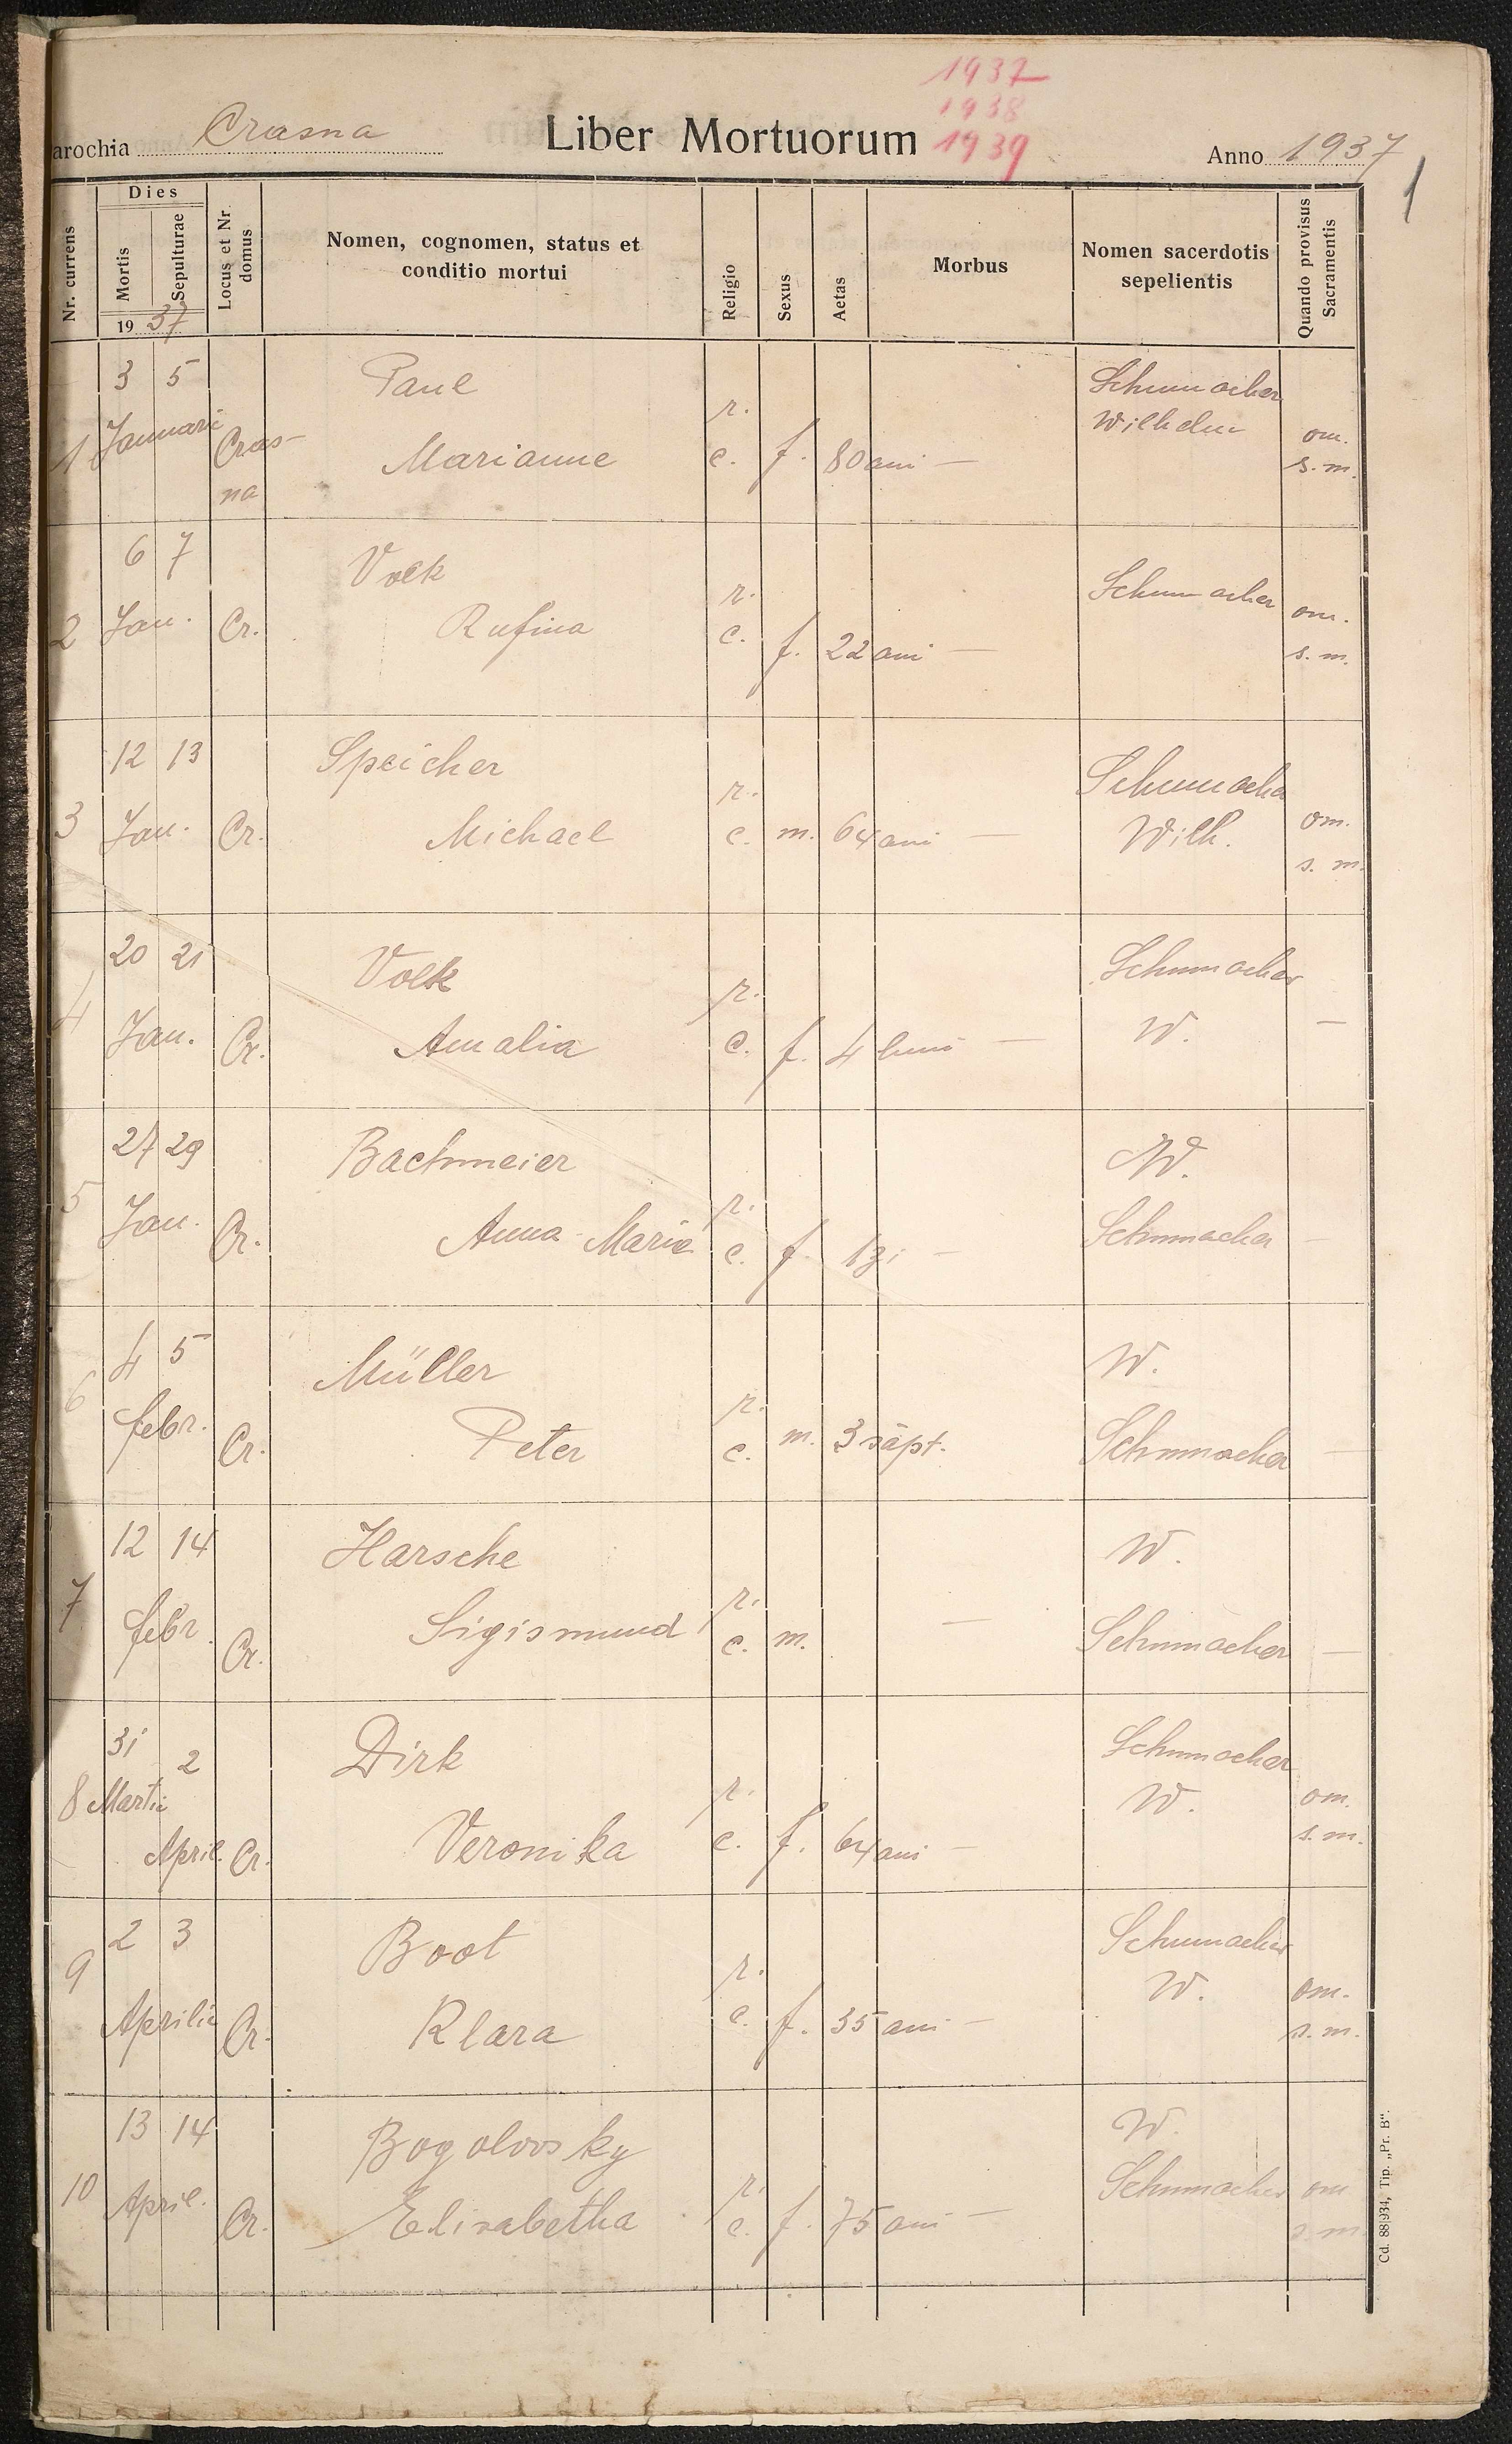 1937
1938
1939
arochia Crasna
Liber Mortuorum
Anno 1937
1
Nr. currens
Dies
Mortis
Sepulturae
19 37
Locus et Nr. domus
Nomen, cognomen, status et
conditio mortui
Religio
Sexus
Aetas
Morbus
Nomen sacerdotis
sepelientis
Quando provisus
Sacramentis
1 3 5 Januari Cras-
na
Paul
Marianne
r.
c. f. 80 ani —
Schumacher
Wilhelm
om.
s. m.
2 6 7 Jan. Cr.
Volk
Rufina
r.
c. f. 22 ani —
Schumacher
om.
s. m.
3 12 13 Jan. Cr.
Speicher
Michael
r.
c. m. 64 ani —
Schumacher
Wilh.
om.
s. m.
4 20 21 Jan. Cr.
Volk
Amalia
r.
c. f. 4 luni —
Schumacher
W.
—
5 27 29 Jan. Cr.
Bachmeier
Anna Maria
r.
c. f. 1 zi —
W.
Schumacher —
6 4 5 febr. Cr.
Müller
Peter
r.
c. m. 3 săpt.
W.
Schumacher —
7 12 14 febr. Cr.
Harsche
Sigismund
r.
c. m. —
W.
Schumacher —
8 31 2 Martii
April. Cr.
Dirk
Veronika
r.
c. f. 64 ani —
Schumacher
W.
om.
s. m.
9 2 3 Aprilie Cr.
Boot
Klara
r.
c. f. 35 ani —
Schumacher
W.
om.
s. m.
10 13 14 April. Cr.
Bogolovsky
Elisabetha
r.
c. f. 75 ani —
W.
Schumacher
om
s. m
Cd. 88|934, Tip. „Pr. B".